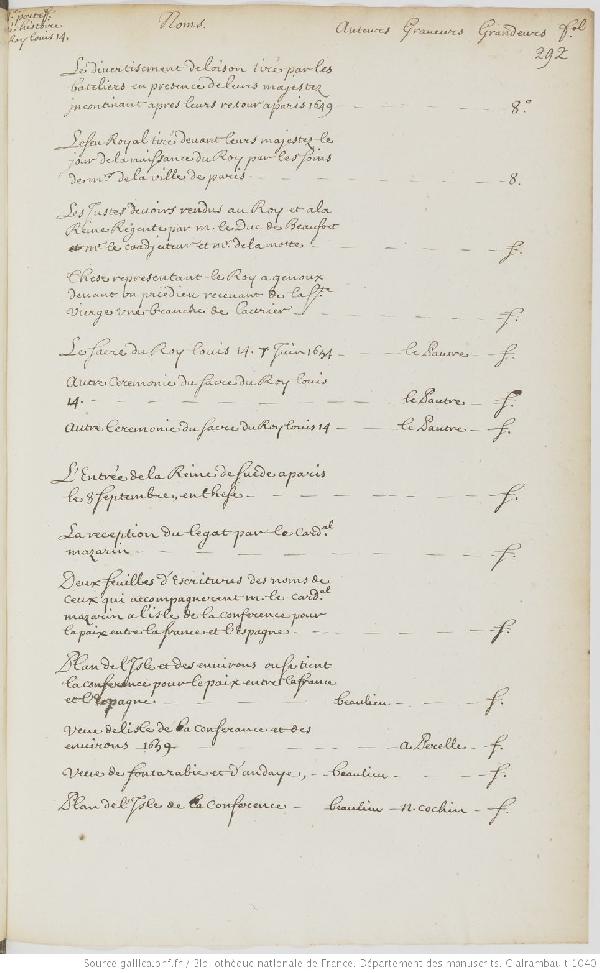 portef.
histoire
Roy louis 14.
Noms. Auteurs Graueurs Grandeurs fol
292
Le divertisment de loison tiré par les
bateliers en presence de leurs majestez
jncontinant apres leurs retour a paris 1649 8.°
Le feu Royal tiré deuant leurs majestez le
jour de la naissance du Roy par les soins
de mrs de la ville de paris 8.
Les Justes deuoirs rendus au Roy et a la
Reine Régente par m. le Duc de Beaufort
mr. le coadjuteur et mr. de la motte. f.
These representant le Roy a genoux
deuant un priedieu receuant de la Ste
vierge vne branche de laurier f.
Le sacre du Roy louis 14. 7 Juin 1654 le Pautre f.
Autre Ceremonie du sacre du Roy louis
14. le Pautre f.
Autre Ceremonie du sacre du Roy louis 14 le Pautre f.
L'Entrée de la Reine de suede a paris
le 8 septembre, en these f.
La reception du legat par le Card.al
mazarin f.
Deux feuilles d'Escritures des noms de
ceux qui accompagnerent m. le card.al
mazarin a l'isle de la conference pour
la paix entre la france et l'espagne. f.
Plan de l'Isle et des environs ou se tient
la conference pour le paix entre la france
et l'Espagne beaulieu f.
Veue de lisle de la Conferance et des
environs 1659 a Perelle f.
Veue de fontarabie et d'andaye, beaulieu f.
Plan de l'Isle de la Conference beaulieu N. Cochin f.
Source gallica.bnf.fr / Bibliothèque nationale de France. Département des manuscrits. Clairambault 1040